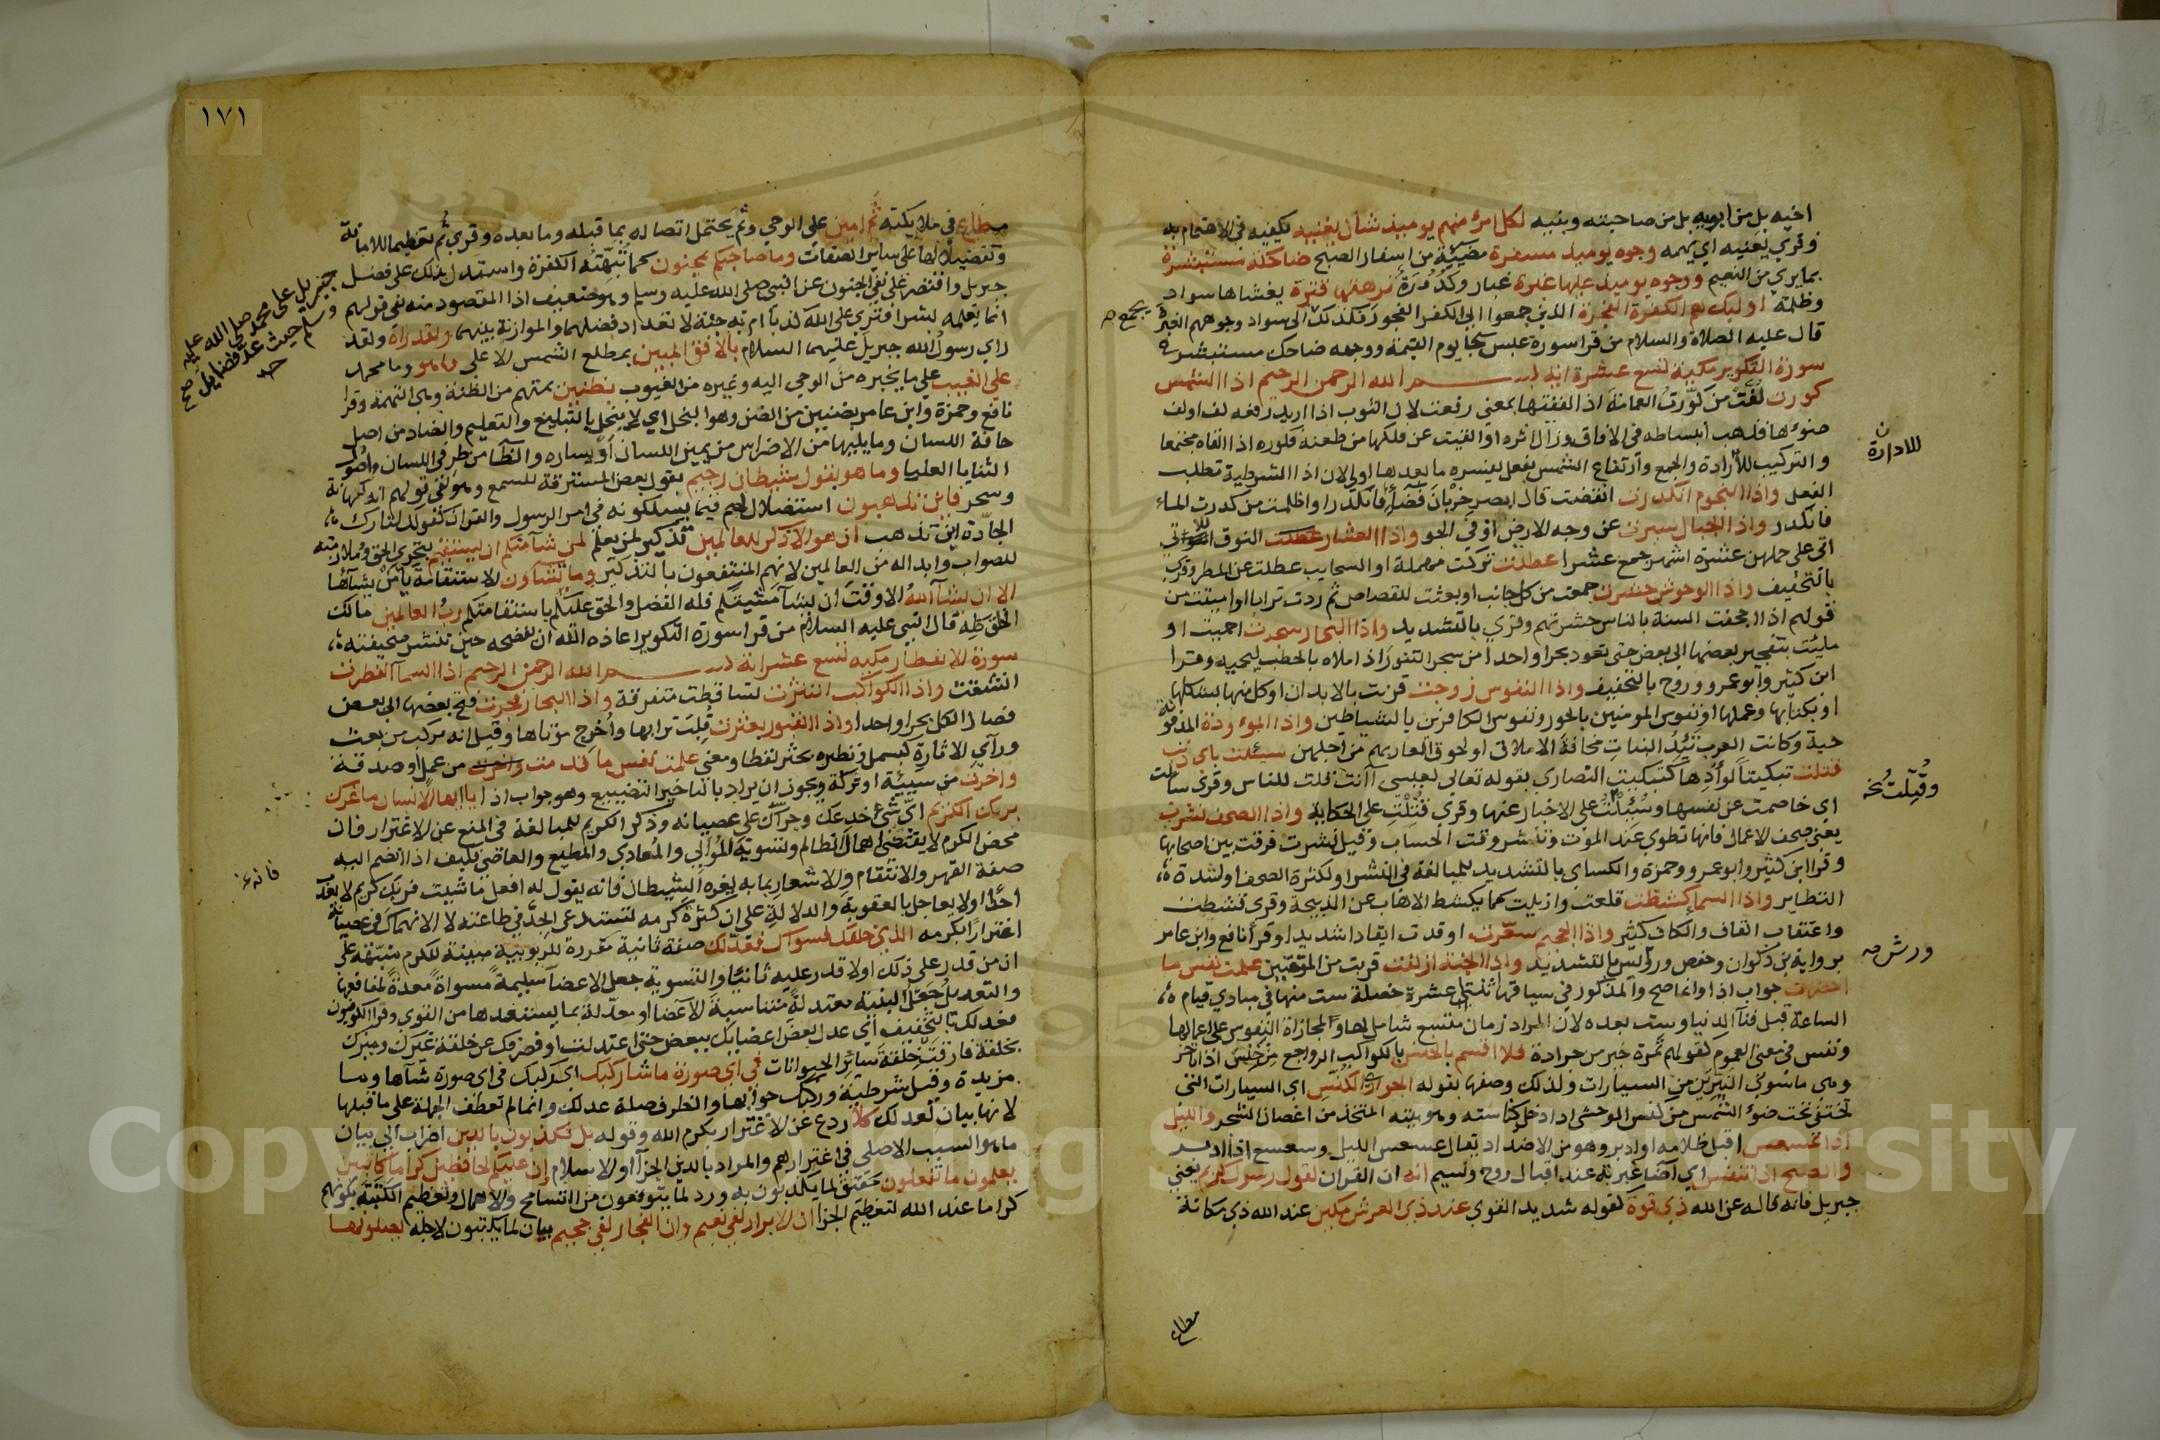 اخيه بل من ابويه بل من صاحبته وبنيه لكل امرئ منهم يوميذ شأن يغنيه يكفيه في الاهتمام به
وقري يعنيه اي يهمه وجوه يوميذ مسفرة مضيئة من اسفار الصبح ضاحكة مستبشرة
بما يري من النعيم ووجوه يوميذ عليها غبرة غبار وكدورة ترهقها قترة يغشاها سواد
وظلمة اوليك هم الكفرة الفجرة الذين جمعوا الي الكفر الفجور فلذلك الي سواد وجوههم الغبرة
يجمع
قال عليه الصلاة والسلام من قرا سورة عبس جا يوم القيمة ووجهه ضاحك مستبشر
سورة التكوير مكية تسع عشرة اية بسم الله الرحمن الرحيم اذا الشمس
كورت لفت من كورت العمامة اذا لففتها بمعني رفعت لان الثوب اذا اريد رفعه لف او لف
ضوءها فذهب انبساطه في الافاق وزال اثره او القيت عن فلكها من طعنه فكوره اذا القاه مجتمعا
والتركيب للارادة والجمع وارتفاع الشمس بفعل يفسره ما بعدها اولي لان اذا الشرطية تطلب
للادارة
الفعل واذا النجوم انكدرت انقضت قال ابصر خربان فضاء فانكدرا او اظلمت من كدرت الماء
فانكدر واذا الجبال سيرت عن وجه الارض او في الجو واذا العشار عطلت النوق اللواتي
اتي علي حملهن عشرة اشهر جمع عشرا عطلت تركت مهملة او السحايب عطلت عن المطر وقري
بالتخفيف واذا الوحوش حشرت جمعت من كل جانب او بعثت للقصاص ثم ردت ترابا او اميتت من
قولهم اذا اجحفت السنة بالناس حشرتهم وقري بالتشديد واذا البحار سجرت احميت او
مليت بتفجير بعضها الي بعض حتي تعود بحرا واحدا من سجر التنور اذا املاه بالحطب ليحميه وقرا
ابن كثير وابو عمرو وروح بالتخفيف واذا النفوس زوجت قرنت بالابدان او كل منها بشكلها
او بكتابها وعملها او نفوس المومنين بالحور ونفوس الكافرين بالشياطين واذا الموءودة المدفونة
حية وكانت العرب تئد البنات مخافة الاملاق او لحوق العار بهم من اجلهن سيئلت باي ذنب
قتلت تبكيتا لوائدها كتبكيت النصاري بقوله تعالي لعيسي اانت قلت للناس وقري سالت
اي خاصمت عن نفسها وسئلت علي الاخبار عنها وقري قتلت علي الحكاية واذا الصحف نشرت
وقتلت نخ
يعني صحف الاعمال فانها تطوي عند الموت وتنشر وقت الحساب وقيل نشرت فرقت بين اصحابها
وقرا ابن كثير وابو عمرو وحمزة والكساي بالتشديد للمبالغة في النشر او لكثرة الصحف او لشدة
التطاير واذا السماء كشطت قلعت وازيلت كما يكشط الاهاب عن الذبيحة وقري قشطت
واعتقاب القاف والكاف كثير واذا الجحيم سعرت اوقدت ايقادا شديدا وقرا نافع وابن عامر
برواية بن ذكوان وحفص ورويس بالتشديد واذا الجنة ازلفت قربت من المتقين علمت نفس ما
ورش صه
احضرت جواب اذا وانما صح والمذكور في سياقها ثنتي عشرة خصلة ست منها في مبادي قيام
الساعة قبل فنا الدنيا وست بعده لان المراد زمان متسع شامل لها والمجازاة النفوس علي اعمالها
ونفس في معني العموم كقولهم تمرة خير من جرادة فلا اقسم بالخنس بالكواكب الرواجع من خنس اذا تاخر
وهي ما سوي النيرين من السيارات ولذلك وصفها بقوله الجوار الكنس اي السيارات التي
تختفي تحت ضوء الشمس من كنس الوحش اذا دخل كناسته وهو بيته المتخذ من اغصان الشجر والليل
اذا عسعس اقبل ظلامه او ادبر وهو من الاضداد يقال عسعس الليل وسعسع اذا ادبر
والصبح اذا تنفس اي اضا غبرته عند اقبال روح ونسيم انه ان القران لقول رسول كريم يعني
جبريل فانه قاله عن الله ذي قوة كقوله شديد القوي عند ذي العرش مكين عند الله ذي مكانة
مطاع
١٧١
مطاع في ملايكته ثم امين علي الوحي وثم يحتمل اتصاله بما قبله وما بعده وقري ثم تعظيما للامانة
وتفضيلا لها علي ساير الصفات وما صاحبكم بمجنون كما تبهته الكفرة واستدل بذلك علي فضل
جبريل علي محمد صلي الله عليه وسلم حيث عد فضايل
جبريل واقتصر علي نفي الجنون عن النبي صلي الله عليه وسلم وهو ضعيف اذ المقصود منه نفي قولهم
انما يعلمه بشر افتري علي الله كذبا ام به جنة لا تعداد فضلهما والموازنة بينهما ولقد راه ولقد
راي رسول الله جبريل عليهما السلام بالافق المبين بمطلع الشمس الاعلي وما هو وما محمد
علي الغيب علي ما يخبره من الوحي اليه وغيره من الغيوب بظنين بمتهم من الظنة وهي التهمة وقرا
نافع وحمزة وابن عامر بضنين من الضن وهو البخل اي لا يبخل بالتبليغ والتعليم والضاد من اصل
حافة اللسان وما يليها من الاضراس من يمين اللسان او يساره والظا من طرف اللسان واصول
الثنايا العليا وما هو بقول شيطان رجيم بقول بعض المسترقة للسمع وهو نفي قولهم انه لكهانة
وسحر فاين تذهبون استضلال لهم فيما يسلكونه في امر الرسول والقران كقولك لتارك
الجادة اين تذهب ان هو الا ذكر للعالمين تذكير لمن يعلم لمن شا منكم ان يستقيم بتحري الحق وملازمة
للصواب وابداله من العالمين لانهم المنتفعون بالتذكير وما تشاون الاستقامة يا من يشاها
الا ان يشا الله الا وقت ان يشا مشيتكم فله الفضل والحق عليكم باستقامتكم رب العالمين مالك
الخلق كله قال النبي عليه السلام من قرا سورة التكوير اعاذه الله ان يفضحه حين تنشر صحيفته
سورة الانفطار مكية تسع عشر اية بسم الله الرحمن الرحيم اذا السما انفطرت
انشقت واذا الكواكب انتثرت تساقطت متفرقة واذا البحار فجرت فتح بعضها الي بعض
فصار الكل بحرا واحدا واذا القبور بعثرت قلبت ترابها واخرج موتاها وقيل انه مركب من بعث
ورآء الاثارة كبسمل ونظيره بحثر لفظا ومعني علمت نفس ما قدمت من عمل او صدقة
واخرت من سيئة او تركة ويجوز ان يراد بالتاخير التضييع وهو جواب اذا يا ايها الانسان ما غرك
بربك الكريم اي شيء خدعك وجراك علي عصيانه وذكر الكريم للمبالغة في المنع عن الاغترار فان
محض الكرم لا يقتضي اهمال الظالم وتسوية الموالي والمعادي والمطيع والعاصي فكيف اذا انضم اليه
صفة القهر والانتقام والاشعار بما به يغره الشيطان فانه يقول له افعل ما شيت فربك كريم لا يعذب
احدا او لا يعاجل بالعقوبة والدلالة علي ان كثرة كرمه تستدعي الجد في طاعته لا الانهماك في عصيانه
اغترارا بكرمه الذي خلقك فسواك فعدلك صفة ثانية مقررة للربوبية مبينة للكرم منبهة علي
ان من قدر علي ذلك اولا قدر عليه ثانيا والتسوية جعل الاعضا سليمة مسواة معدة لمنافعها
والتعديل جعل البنية معتدلة متناسبة الاعضا او معدلة بما يستعدها من القوي وقرا الكوفيون
فعدلك بالتخفيف اي عدل بعض اعضايك ببعض حتي اعتدلت او فصرفك عن خلقة غيرك وميزك
بخلقة فارقت خلقة ساير الحيوانات في اي صورة ما شا ركبك اي ركبك في اي صورة شاها وما
مزيدة وقيل شرطية وركبك جوابها والظرف صلة عدلك وانما لم تعطف الجملة علي ما قبلها
لانها بيان لعدلك كلا ردع عن الاغترار بكرم الله وقوله بل تكذبون بالدين اضراب الي بيان
ما هو السبب الاصلي في اغترارهم والمراد بالدين الجزا او الاسلام وان عليكم لحافظين كراما كاتبين
يعلمون ما تفعلون تحقيق لما يكذبون به ورد لما يتوقعون من التسامح والاهمال وتعظيم الكتبة بكونهم
كراما عند الله لتعظيم الجزا ان الابرار لفي نعيم وان الفجار لفي جحيم بيان لما يكتبون لاجله يصلونها
Copyright King Saud University